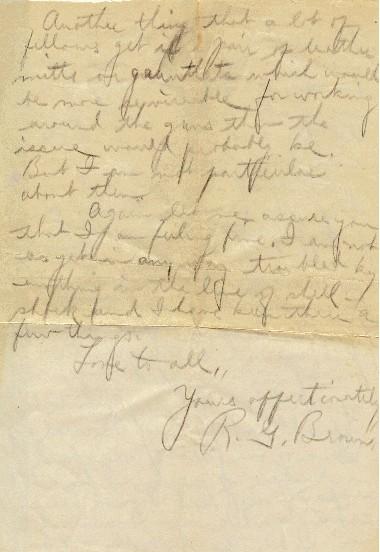 Another thing that a lot of
fellows get is a pair of leather
mitts or gauntlets which would
be more serviceable for working
around the guns than the
issue would probably be.
But I am not particular
about them.
Again let me assure you
that I am feeling fine. I am not
as yet in any way troubled by
anything in the line of shell-
shock and I hope keep there a
few things.
Love to all,,
Yours affectionately
R. G. Brown.